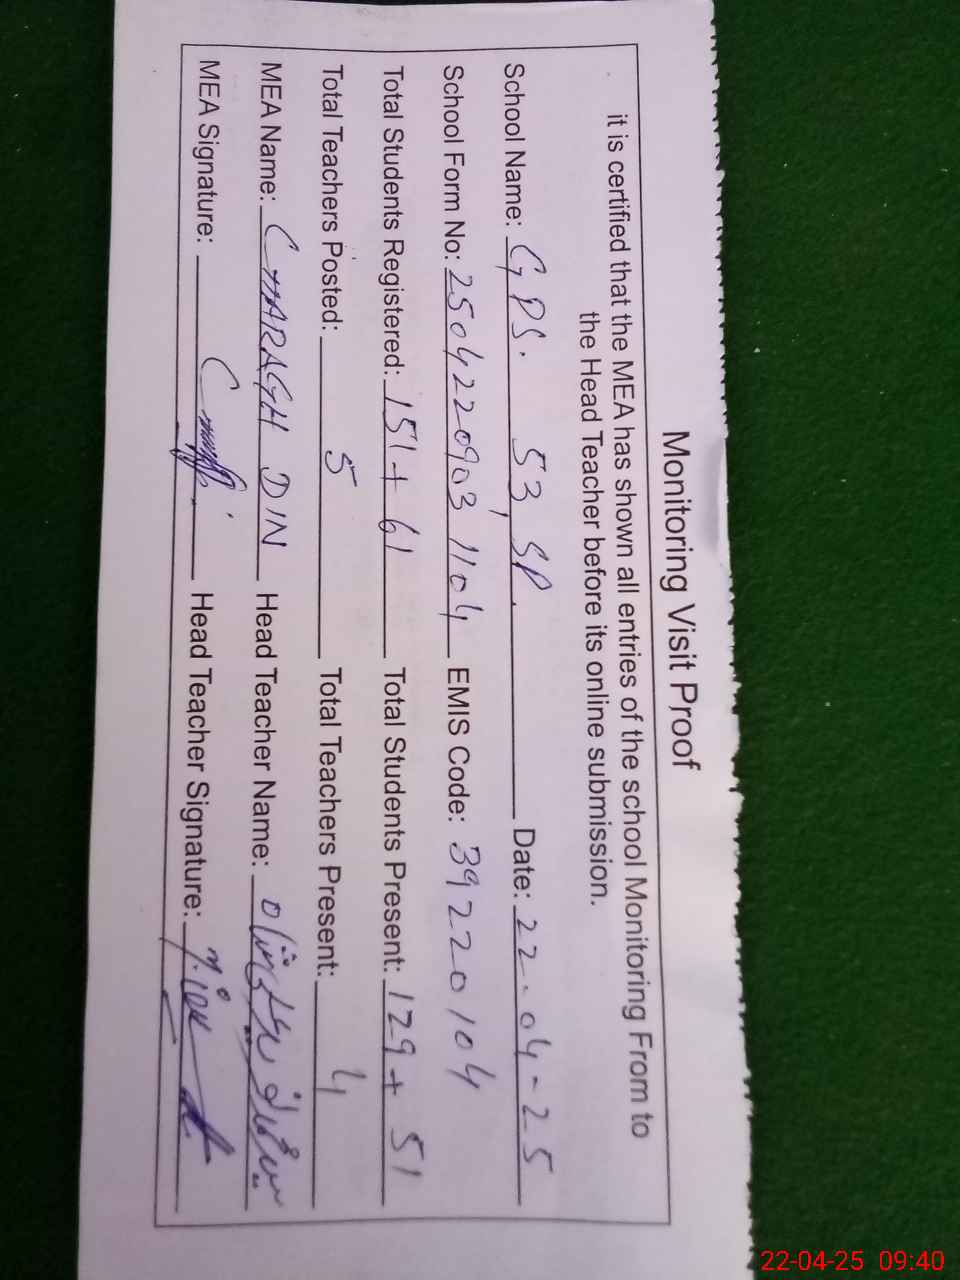 Monitoring Visit Proof
it is certified that the MEA has shown all entries of the school Monitoring From to
the Head Teacher before its online submission.
School Name: GPS. 53/SP. Date: 22-04-25
School Form No: 25042209031104 EMIS Code: 39220104
Total Students Registered: 151 + 61 Total Students Present: 129 + 51
Total Teachers Posted: 5 Total Teachers Present: 4
MEA Name: CHARAGH DIN Head Teacher Name:
MEA Signature: Head Teacher Signature:
22-04-25 09:40